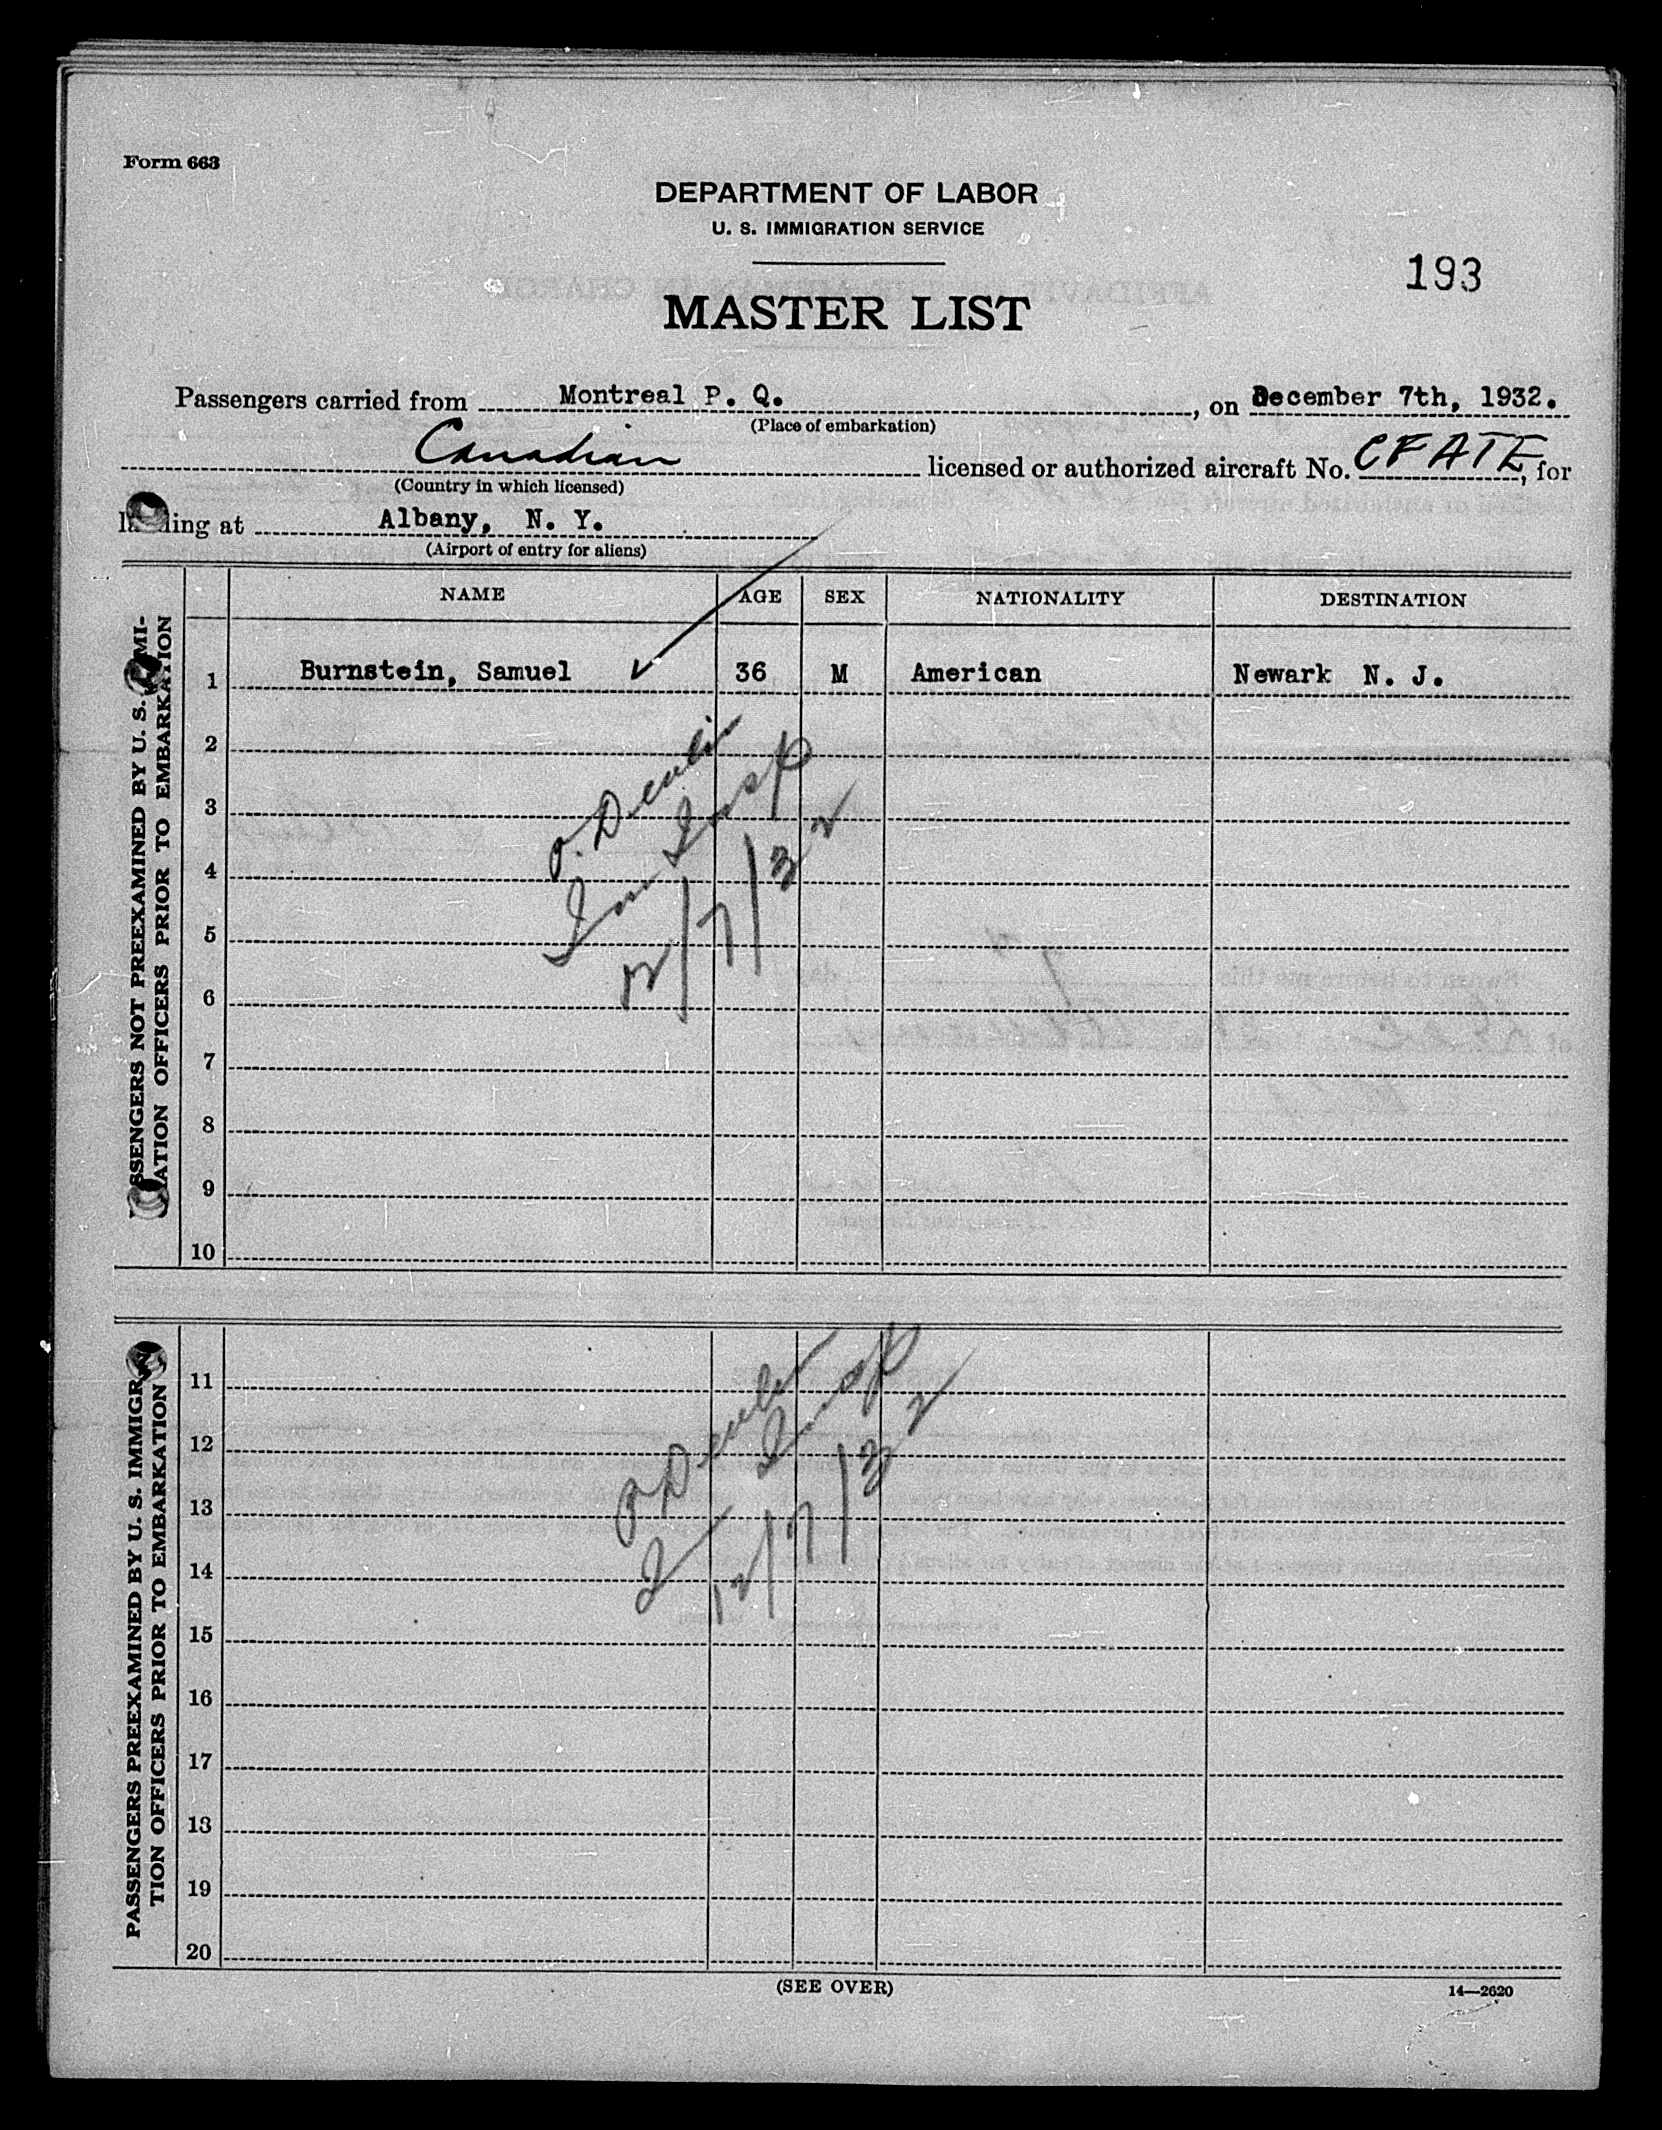 Form 663
DEPARTMENT OF LABOR
U. S. IMMIGRATION SERVICE
193
MASTER LIST
Passengers carried from Montreal P. Q., on December 7th, 1932.
(Place of embarkation)
Canadian licensed or authorized aircraft No. CFATE, for
(Country in which licensed)
landing at Albany, N. Y.
(Airport of entry for aliens)
NAME AGE SEX NATIONALITY DESTINATION
PASSENGERS NOT PREEXAMINED BY U. S. IMMI-
GRATION OFFICERS PRIOR TO EMBARKATION
1 Burnstein, Samuel ✓ 36 M American Newark N. J.
2
3
4
5
6
7
8
9
10
O. Devlin
Imm Insp
12/7/32
PASSENGERS PREEXAMINED BY U. S. IMMIGRA-
TION OFFICERS PRIOR TO EMBARKATION
11
12
13
14
15
16
17
18
19
20
O Devlin
Insp
12/7/32
(SEE OVER)
14—2620